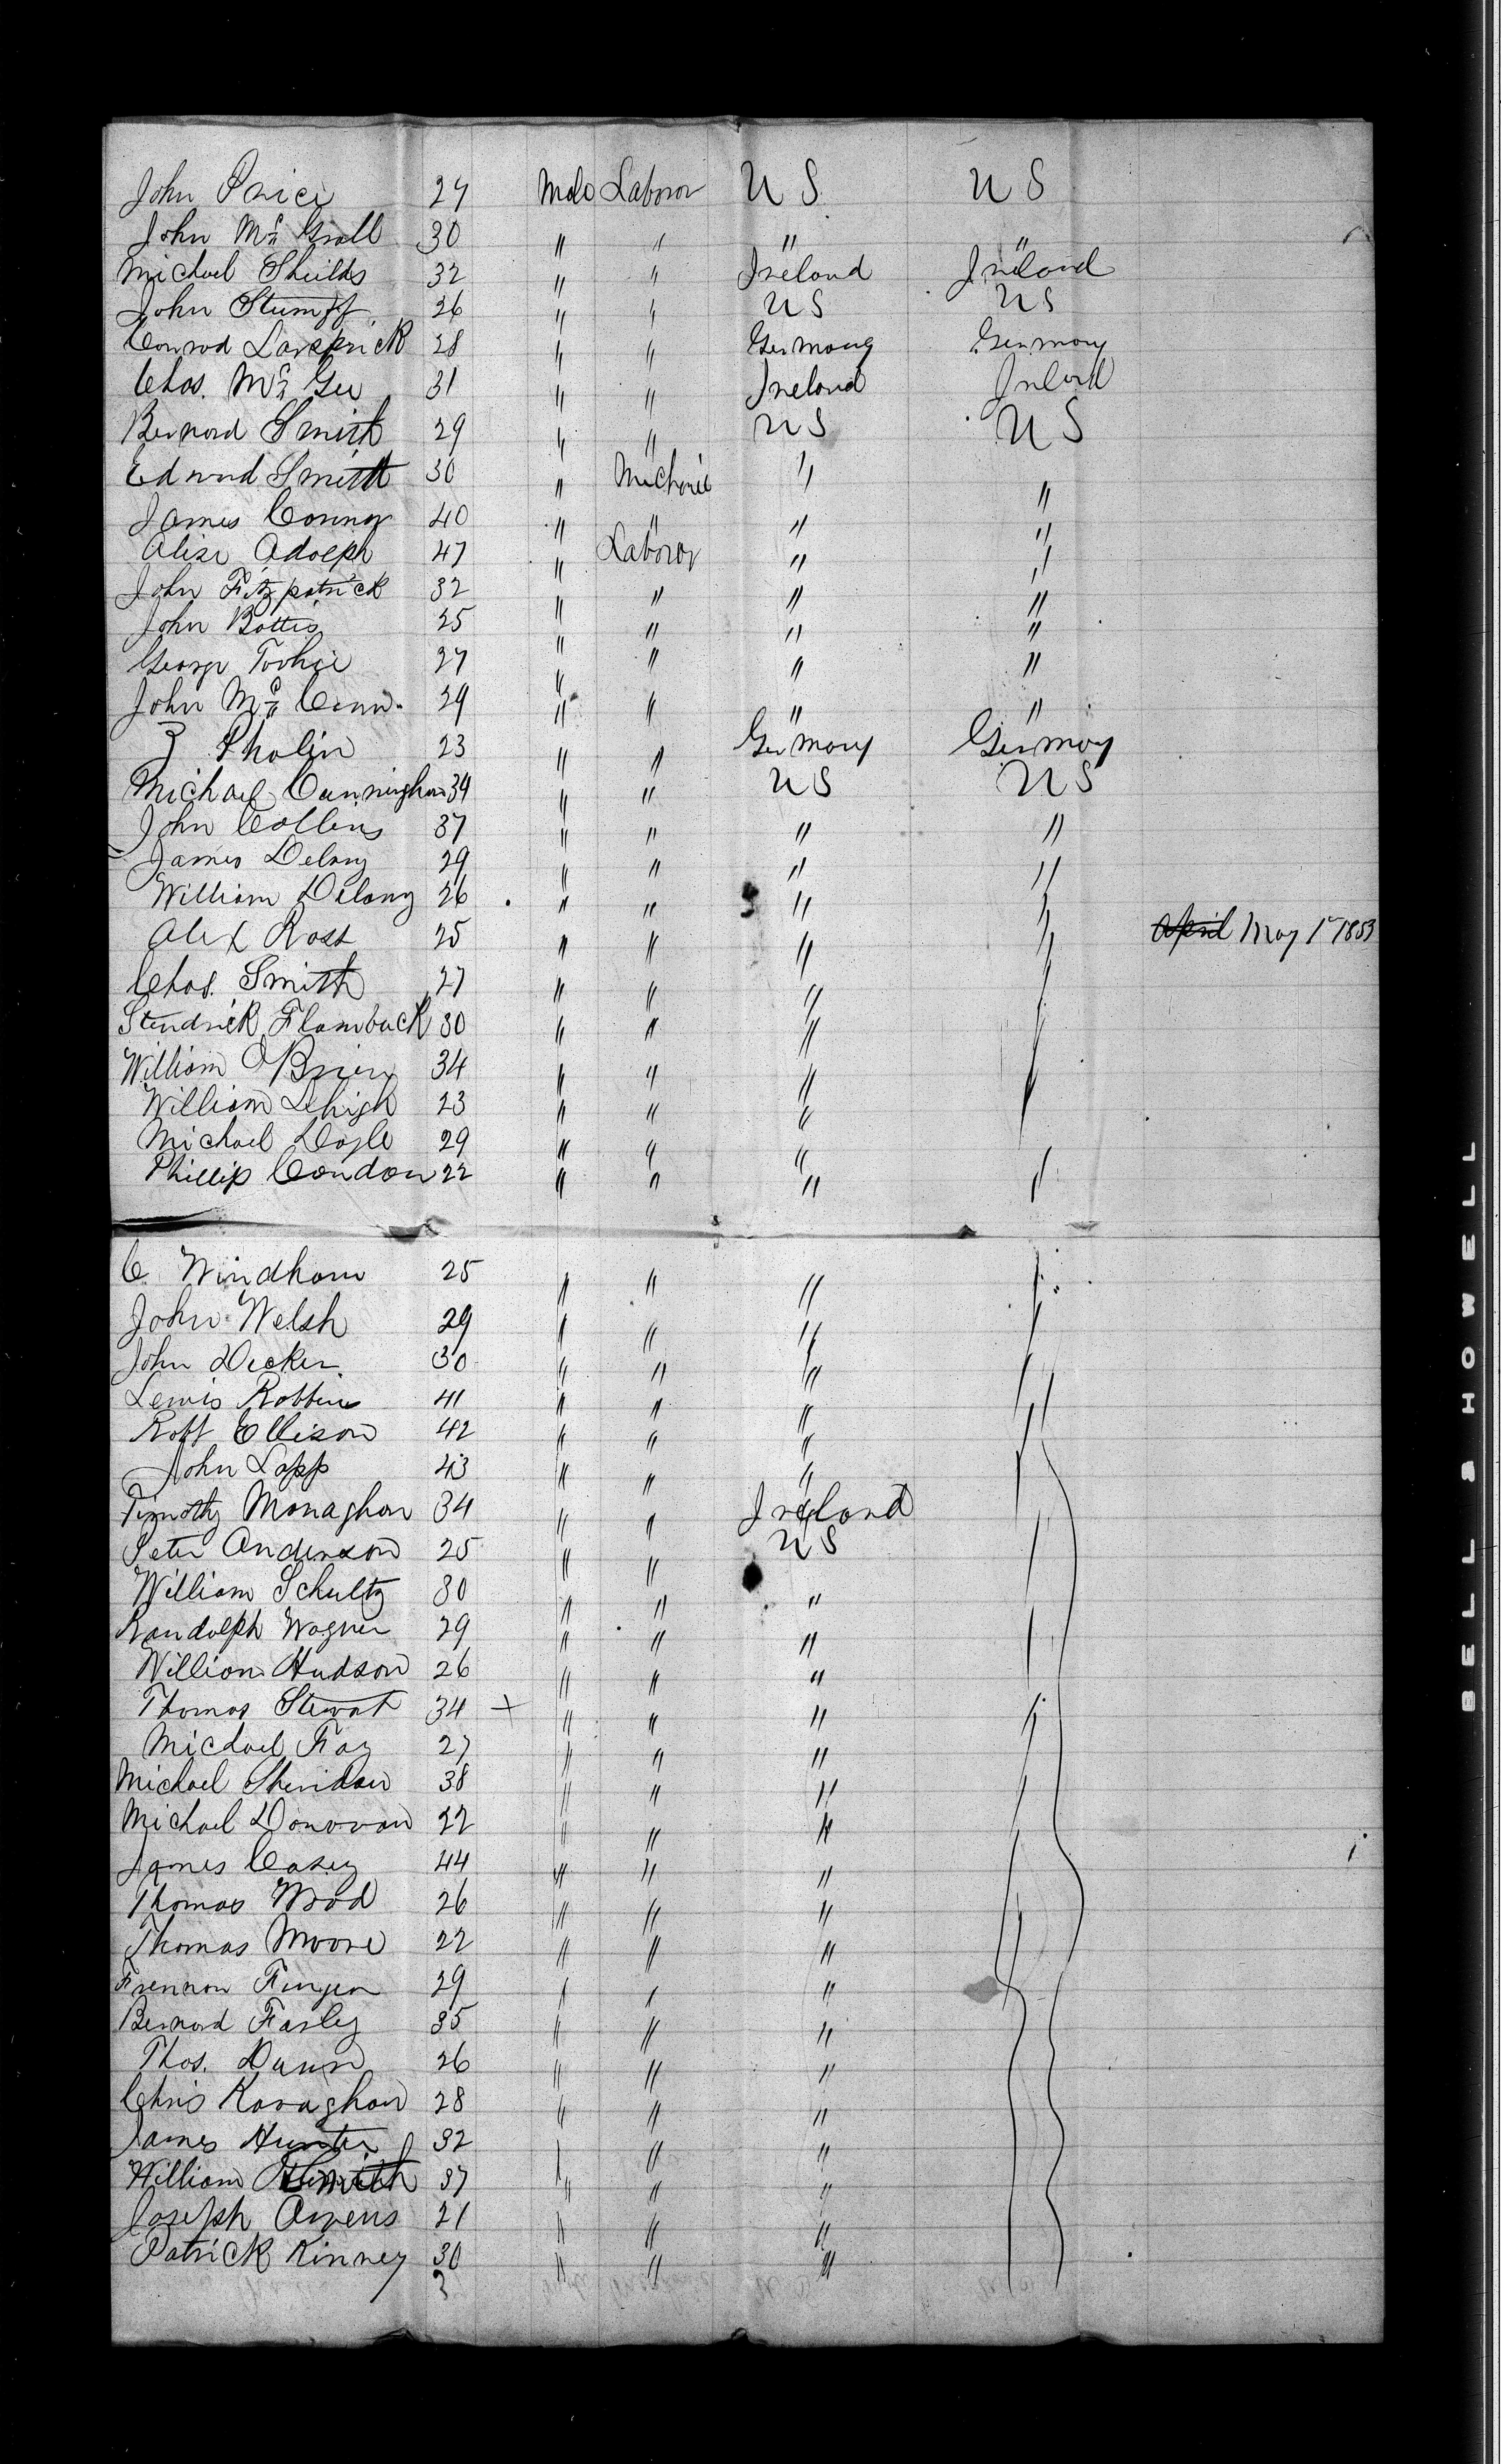 John Price 27 Male Laborer U S U S
John Mc Grall 30 " " " "
Michael Sheilds 32 " " Ireland Ireland
John Stumpf 26 " " U S U S
Conrad 28 " " Germany Germany
Chas. Mc Gee 31 " " Ireland Ireland
Bernard Smith 29 " " U S U S
Edward Smith 30 " " "
James Connor 40 " " " "
Adolph 47 " Laborer " "
John Fitzpatrick 32 " " " "
John 25 " " " "
George 27 " " " "
John Mc Cann 29 " " " "
Pholin 23 " " Germany Germany
Michael Cunningham 34 " " U S U S
John Collins 37 " " " "
James Delany 29 " " " "
William Delany 26 " " " "
Alex Ross 25 " " " " April May 1st 1853
Chas. Smith 27 " " " "
Flamback 30 " " " "
William OBrien 34 " " " "
William Lehigh 23 " " "
Michael Doyle 29 " " "
Phillip Condon 22 " " " "
C Windham 25 " " " "
John Welsh 29 " " " "
John Decker 30 " " " "
Lewis Robbins 41 " " " "
Robt Ellison 42 " " " "
John Lapp 43 " " "
Timothy Monaghan 34 " " Ireland
Peter Anderson 25 " " U S
William Schultz 30 " " "
Randolph Wagner 29 " " "
William Hudson 26 " " "
Thomas Stewart 34 + " " " "
Michael Fay 27 " " "
Michael Sheridan 38 " " "
Michael Donovan 22 " " "
James Casey 44 " " "
Thomas Wood 26 " " "
Thomas Moore 22 " " "
29 " " "
Bernard Farley 35 " " "
Thos. Dunn 26 " " "
Chris Kavaghan 28 " " "
James Hunter 32 " " "
William Smith 37 " " "
Joseph Owens 21 " " "
Patrick Kinney 30 " " "
3
BELL & HOWELL